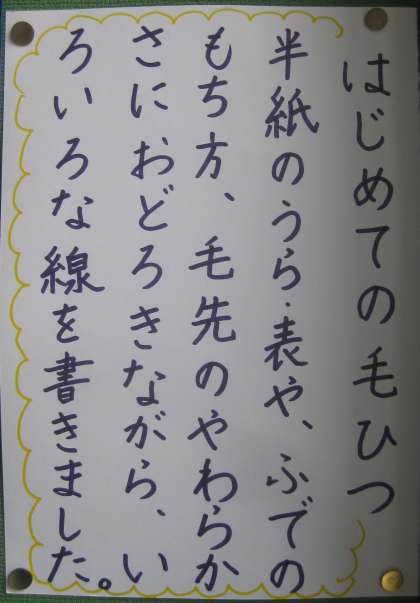 はじめての毛ひつ
半紙のうら・表や、ふでの
もち方、毛先のやわらか
さにおどろきながら、い
ろいろな線を書きました。